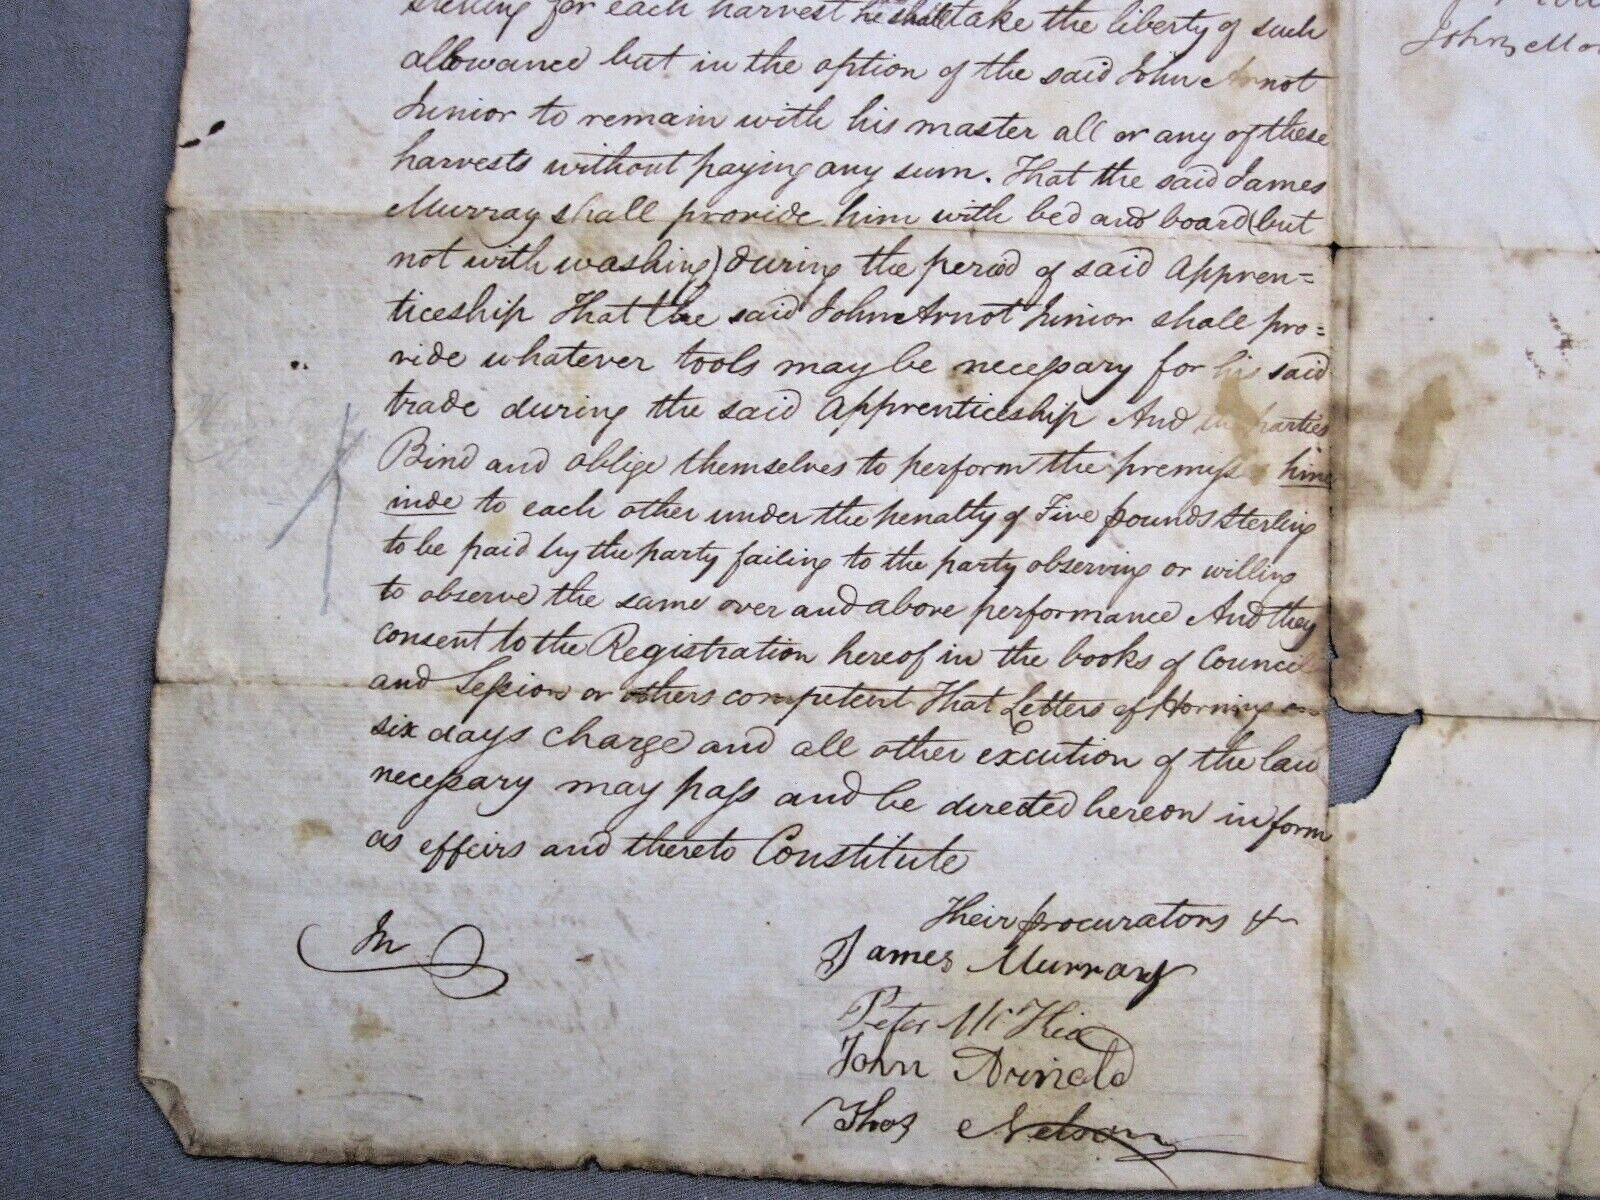 sterling for each harvest he shall take the liberty of such
allowance but in the option of the said John Arnot
Junior to remain with his master all or any of these
harvests without paying any sum. That the said James
Murray shall provide him with bed and board (but
not with washing) during the period of said Appren=
ticeship That the said John Arnot Junior shall pro=
vide whatever tools may be necessary for his said
trade during the said Apprenticeship And parties
Bind and oblige themselves to perform the premiss hinc
inde to each other under the penalty of Five pounds Sterling
to be paid by the party failing to the party observing or willing
to observe the same over and above performance And they
consent to the Registration hereof in the books of Council
and Session or others competent That Letters of Horning on
six days charge and all other excution of the law
necessary may pass and be directed hereon in form
as effeirs and thereto Constitute
Their procurators &c
In
James Murray
Peter
John Arnold
Thos Nelson
John